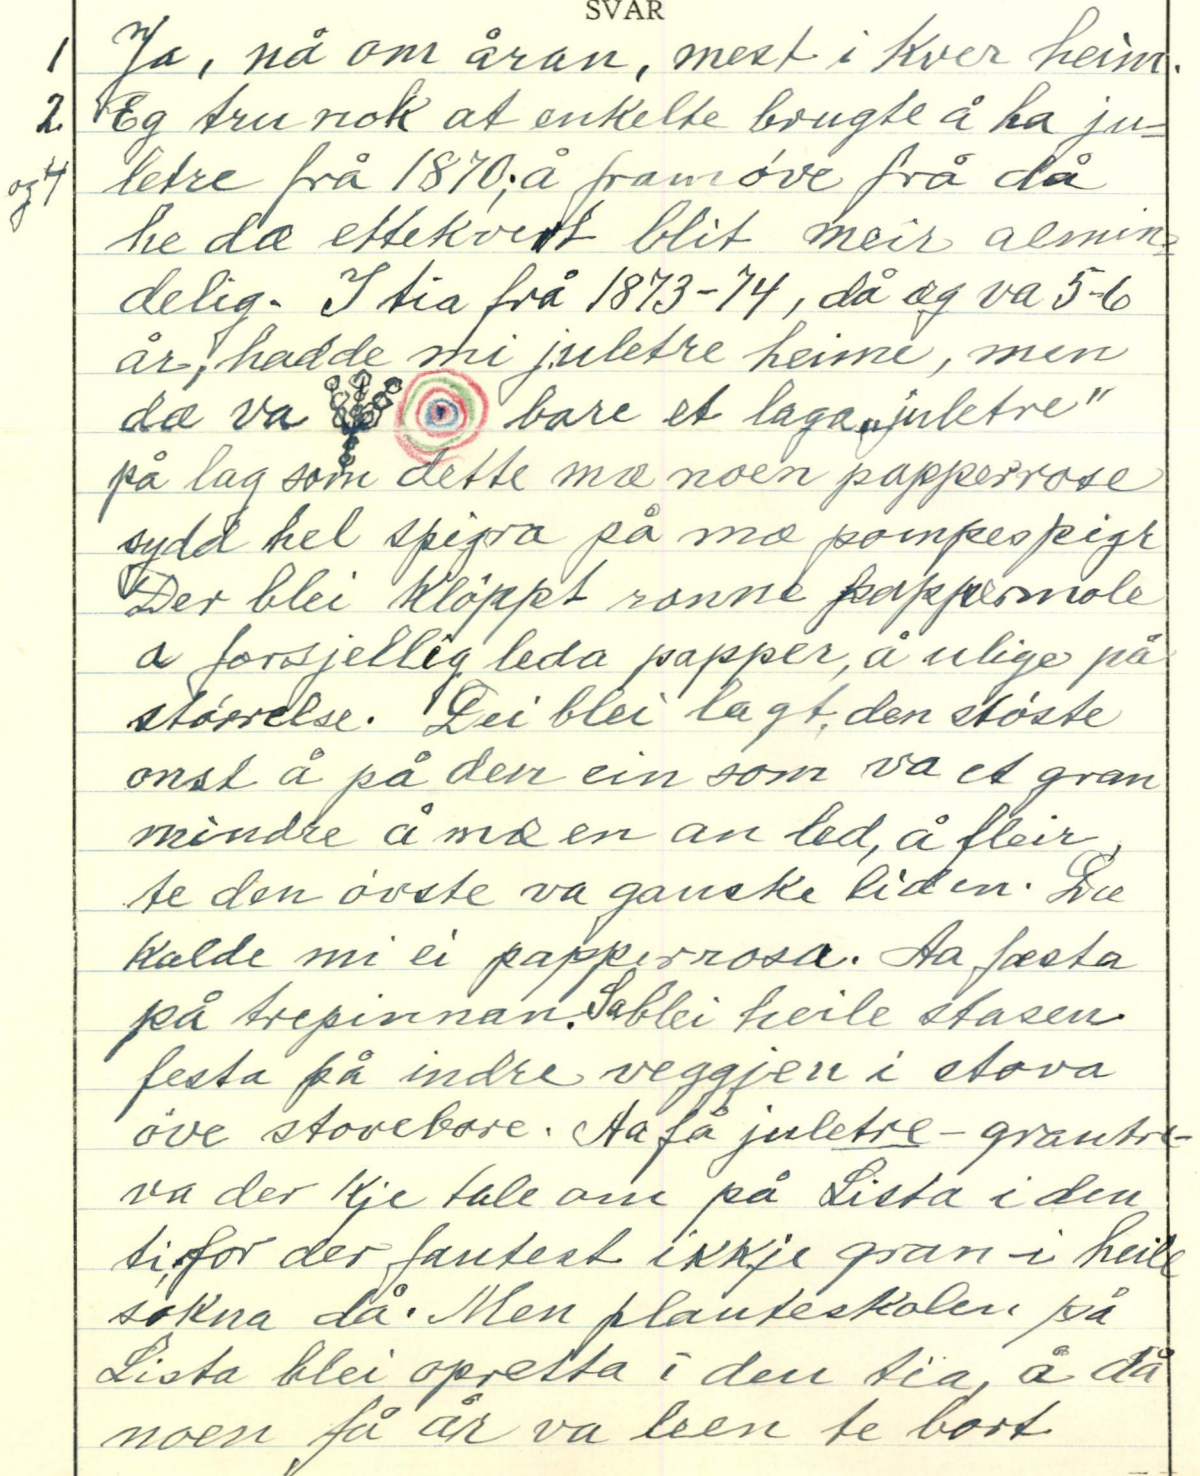 SVAR
1 Ja, nå om åran, mest i kver heim.
2. Eg tru nok at enkelte brugte å ha ju-
og 4 letre frå 1870; å framöve frå då
he dæ ettekvert blit meir almin-
delig. I tia frå 1873-74, då eg va 5-6
år, hadde mi juletre heime, men
dæ va bare et laga „juletre"
på lag som dette mæ noen papperrose
sydd hel spigra på mæ pompespigr
Der blei klöppt ronne pappermole
a forsjellig leda papper, å ulige på
störrelse. Dei blei lagt, den stöste
onst å på den ein som va et gran
mindre å mæ en an led, å fleir,
te den övste va ganske liden. Dæ
kalde mi ei papperrosa. Aa festa
på trepinnan. Så blei heile stasen
festa på indre veggjen i stova
öve storebore. Aa få juletre - grantre-
va der kje tale om på Lista i den
ti, for der fantest ikkje gran i heile
sokna då. Men planteskolen på
Lista blei opretta i den tia, å då
noen få år va leen te bort